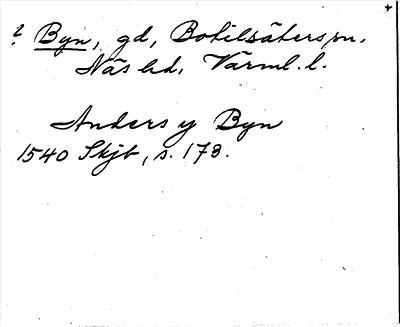 ? Byn, gd, Botilsäters sn.
Näs hd, Värml. l.
Anders y Byn
1540 Skjb, s. 173.